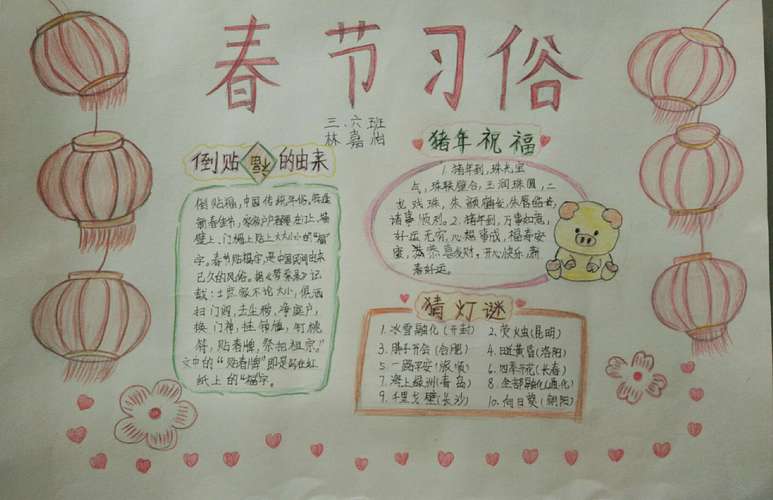 春节习俗
三.六班
林嘉怡
倒贴福的由来
倒贴福,中国传统年俗,每逢
新春佳节,家家户户都要在门上、墙
壁上、门楣上贴上大大小小的“福”
字。春节贴福字,是中国民间由来
已久的风俗。据《梦粱录》记
载:士庶家不论大小,俱洒
扫门闾,去尘秽,净庭户,
换门神,挂钟馗,钉桃
符,贴春牌,祭祀祖宗。”
文中的“贴春牌”即是写在红
纸上的“福”字。
猪年祝福
1.猪年到,珠光宝
气,珠联璧合,玉润珠圆,二
龙戏珠,朱颜
诸事顺利。2.猪年到,万事如意,
好运无穷,心想事成,福寿安
恭喜发财,开心快乐,新
春好运。
猜灯谜
1.冰雪融化(开封) 2.荧火虫(昆明)
3.胖子开会(合肥) 4.日近黄昏(洛阳)
5.一路平安(旅顺) 6.四季开花(长春)
7.海上绿洲(青岛) 8.全部融化(通化)
9.千里戈壁(长沙) 10.向日葵(朝阳)